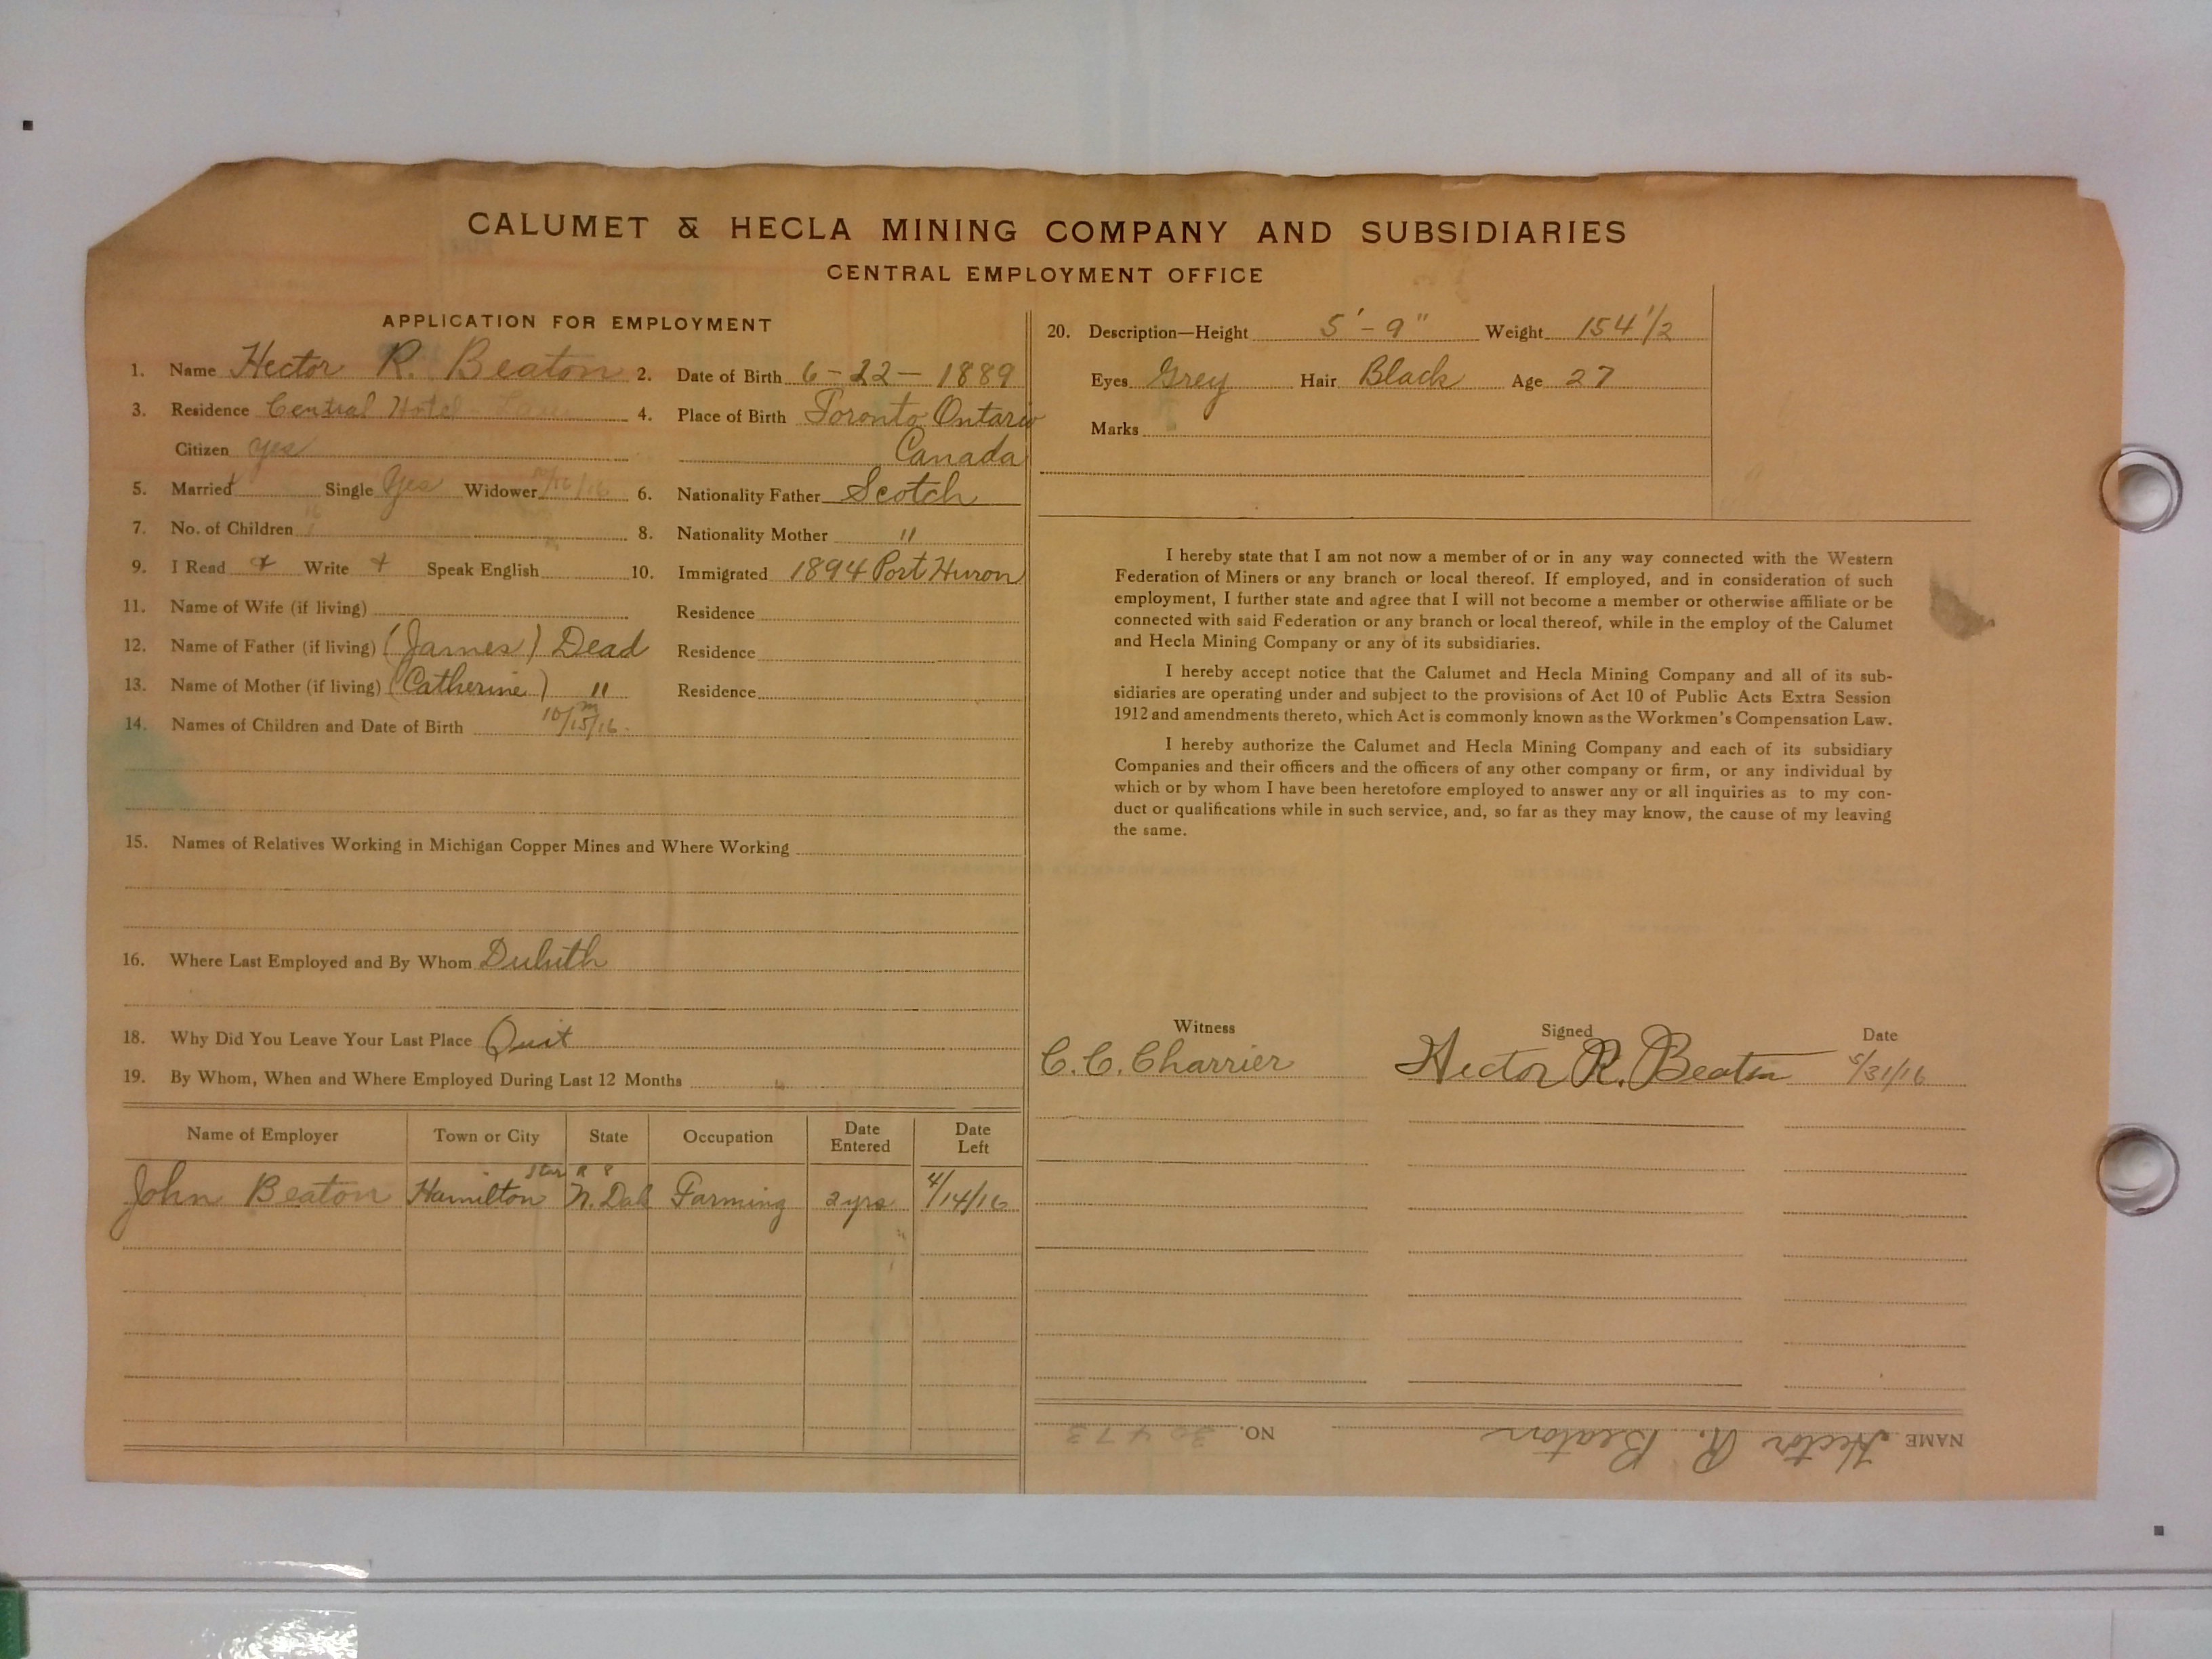 CALUMET & HECLA MINING COMPANY AND SUBSIDIARIES
CENTRAL EMPLOYMENT OFFICE
APPLICATION FOR EMPLOYMENT
1. Name Hector R. Beaton 2. Date of Birth 6-22-1889
3. Residence Central Hotel 4. Place of Birth Toronto Ontario
Citizen yes Canada
5. Married Single Yes Widower 6. Nationality Father Scotch
7. No. of Children 8. Nationality Mother "
9. I Read + Write + Speak English 10. Immigrated 1894 Port Huron
11. Name of Wife (if living) Residence
12. Name of Father (if living) (James) Dead Residence
13. Name of Mother (if living) (Catherine) " Residence
14. Names of Children and Date of Birth 10/15/16
15. Names of Relatives Working in Michigan Copper Mines and Where Working
16. Where Last Employed and By Whom Duluth
18. Why Did You Leave Your Last Place Quit
19. By Whom, When and Where Employed During Last 12 Months
Name of Employer Town or City State Occupation Date Entered Date Left
John Beaton Hamilton N. Dak Farming 2 yrs 4/14/16
20. Description—Height 5'-9" Weight 154 1/2
Eyes Grey Hair Black Age 27
Marks
I hereby state that I am not now a member of or in any way connected with the Western
Federation of Miners or any branch or local thereof. If employed, and in consideration of such
employment, I further state and agree that I will not become a member or otherwise affiliate or be
connected with said Federation or any branch or local thereof, while in the employ of the Calumet
and Hecla Mining Company or any of its subsidiaries.
I hereby accept notice that the Calumet and Hecla Mining Company and all of its sub-
sidiaries are operating under and subject to the provisions of Act 10 of Public Acts Extra Session
1912 and amendments thereto, which Act is commonly known as the Workmen's Compensation Law.
I hereby authorize the Calumet and Hecla Mining Company and each of its subsidiary
Companies and their officers and the officers of any other company or firm, or any individual by
which or by whom I have been heretofore employed to answer any or all inquiries as to my con-
duct or qualifications while in such service, and, so far as they may know, the cause of my leaving
the same.
Witness Signed Date
C. C. Charrier Hector R. Beaton 5/31/16
NAME Hector R. Beaton NO. 30473